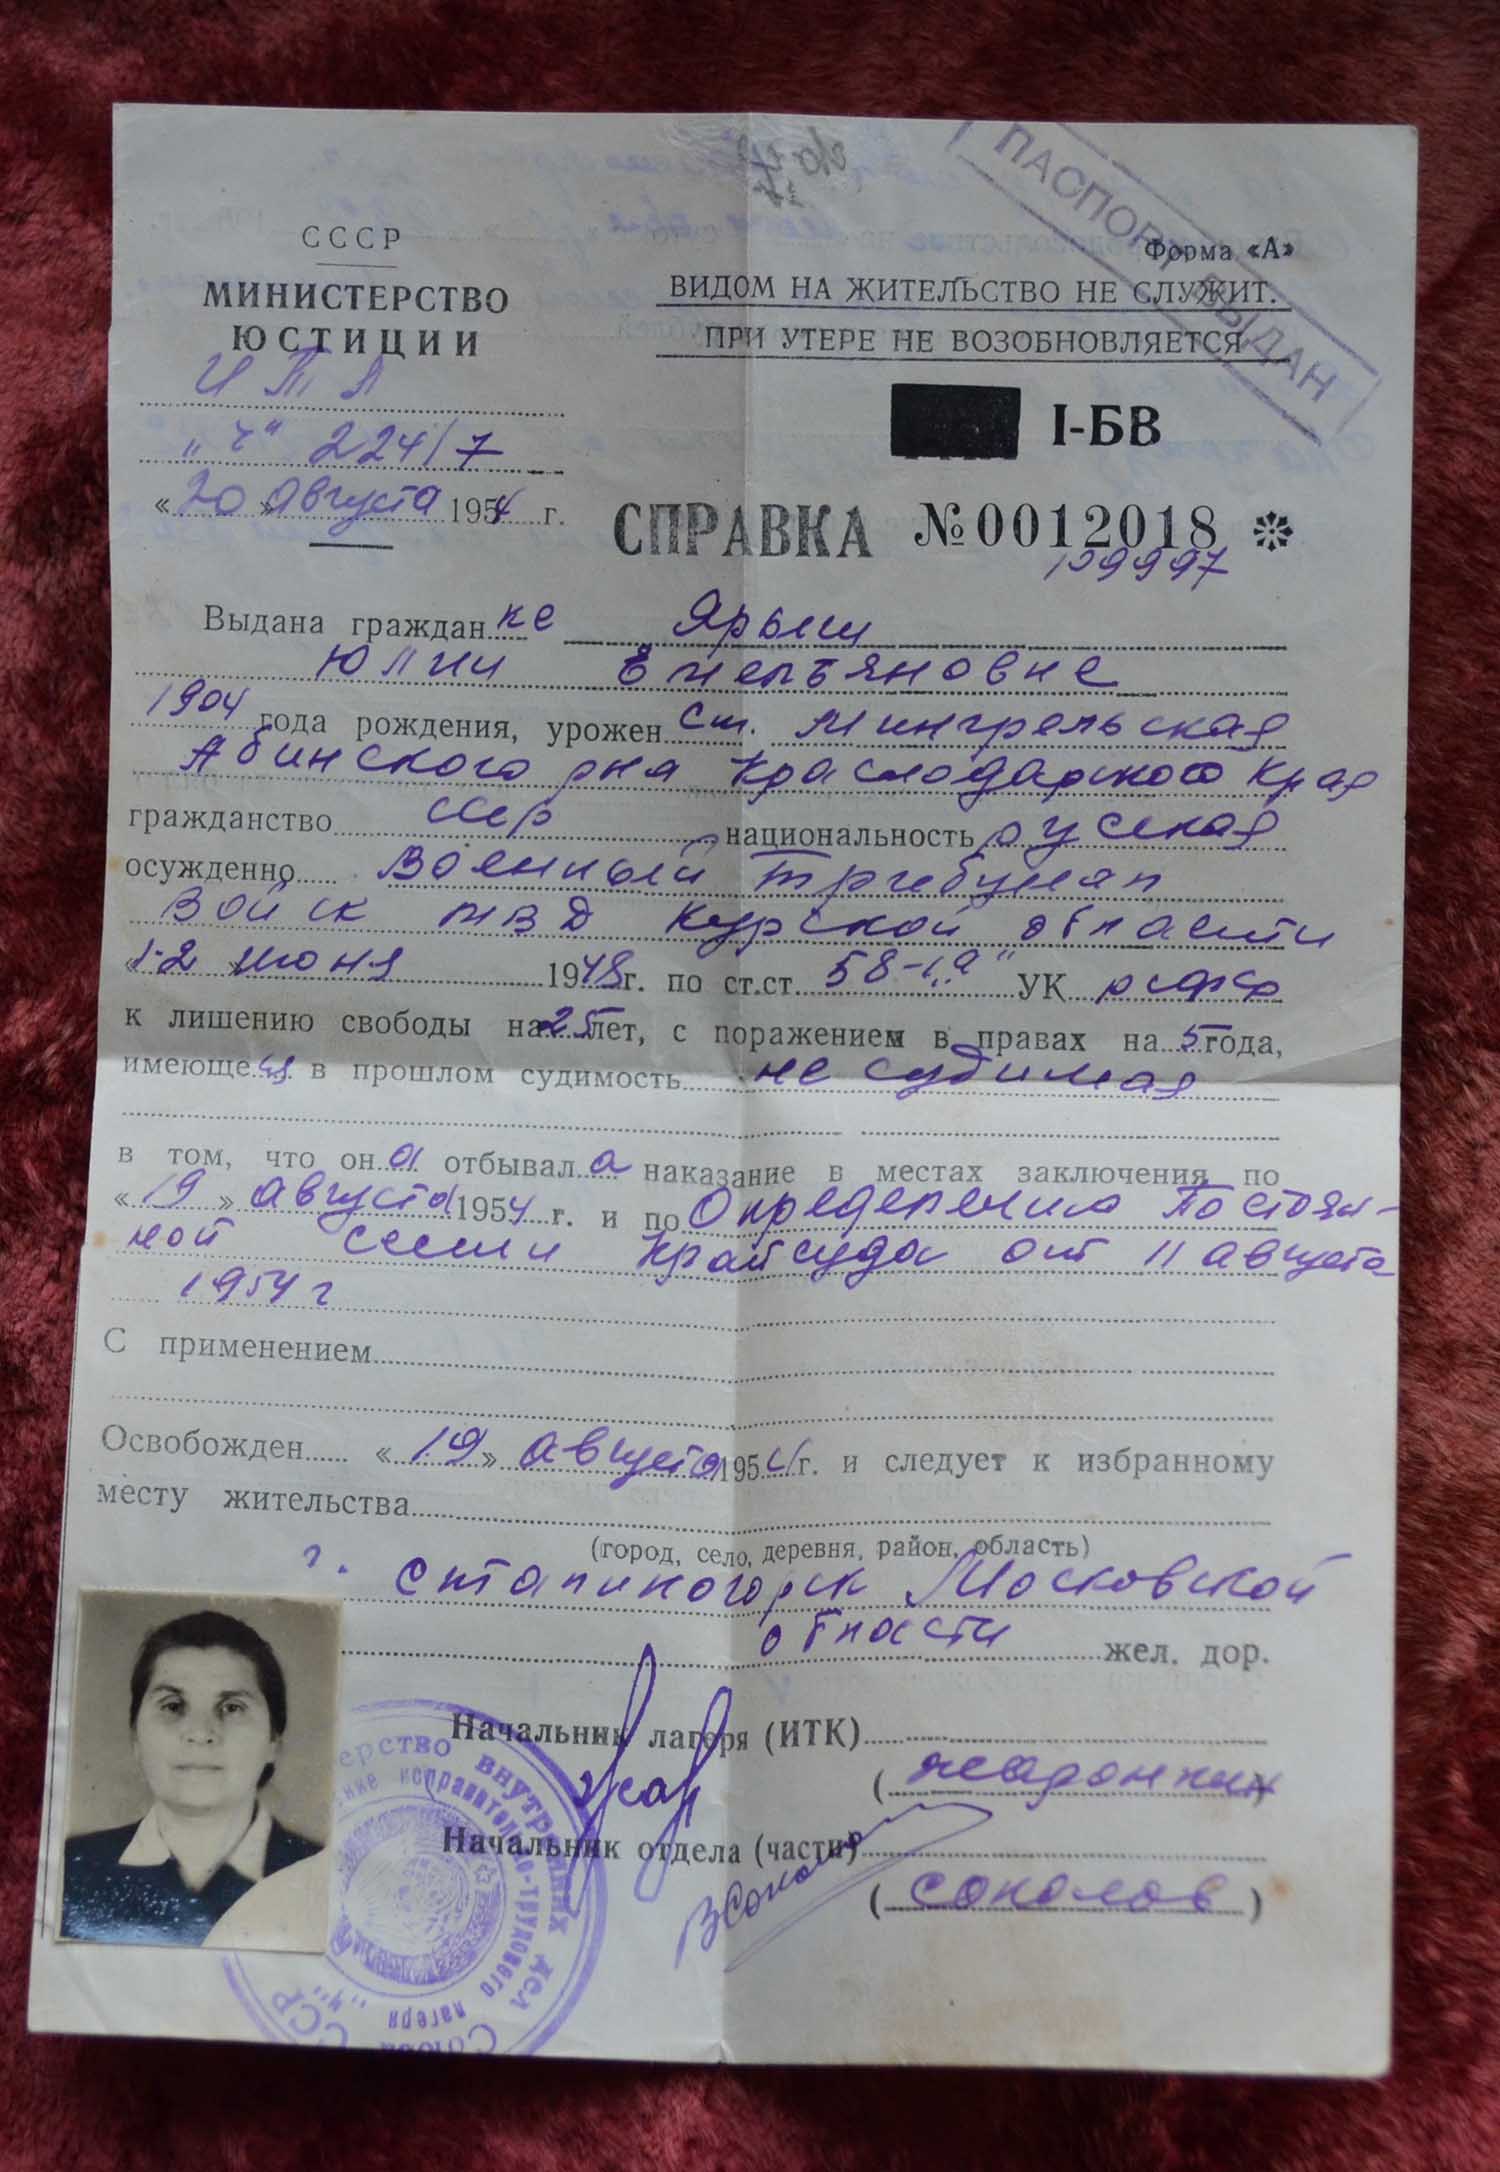 ПАСПОРТ ВЫДАН
СССР
Форма «А»
МИНИСТЕРСТВО
ЮСТИЦИИ
ВИДОМ НА ЖИТЕЛЬСТВО НЕ СЛУЖИТ.
ПРИ УТЕРЕ НЕ ВОЗОБНОВЛЯЕТСЯ
ИТЛ
I-БВ
„Ч“ 224/7
«20» августа 1954 г.
СПРАВКА №0012018
129997
Выдана гражданке Ярыш
Юлии Емельяновне
1904 года рождения, урожен ст. Мингрельская
Абинского рна Краснодарского края
гражданство ссср национальность русская
осужденно Военный трибунал
Войск МВД Курской области
«1-2» июня 1948 г. по ст.ст 58-1„а“ УК рсфср
к лишению свободы на 25 лет, с поражением в правах на 5 года,
имеющей в прошлом судимость не судимая
в том, что она отбывала наказание в местах заключения по
«19» августа 1954 г. и по Определению Постоян-
ной сессии Крайсуда от 11 августа
1954 г
С применением
Освобожден «19» августа 1954 г. и следует к избранному
месту жительства
(город, село, деревня, район, область)
г. Сталиногорск Московской
области жел. дор.
Начальник лагеря (ИТК)
Начальник отдела (части)
(Соколов)
Министерство внутренних дел Союза ССР
исправительно-трудового лагеря „Ч“